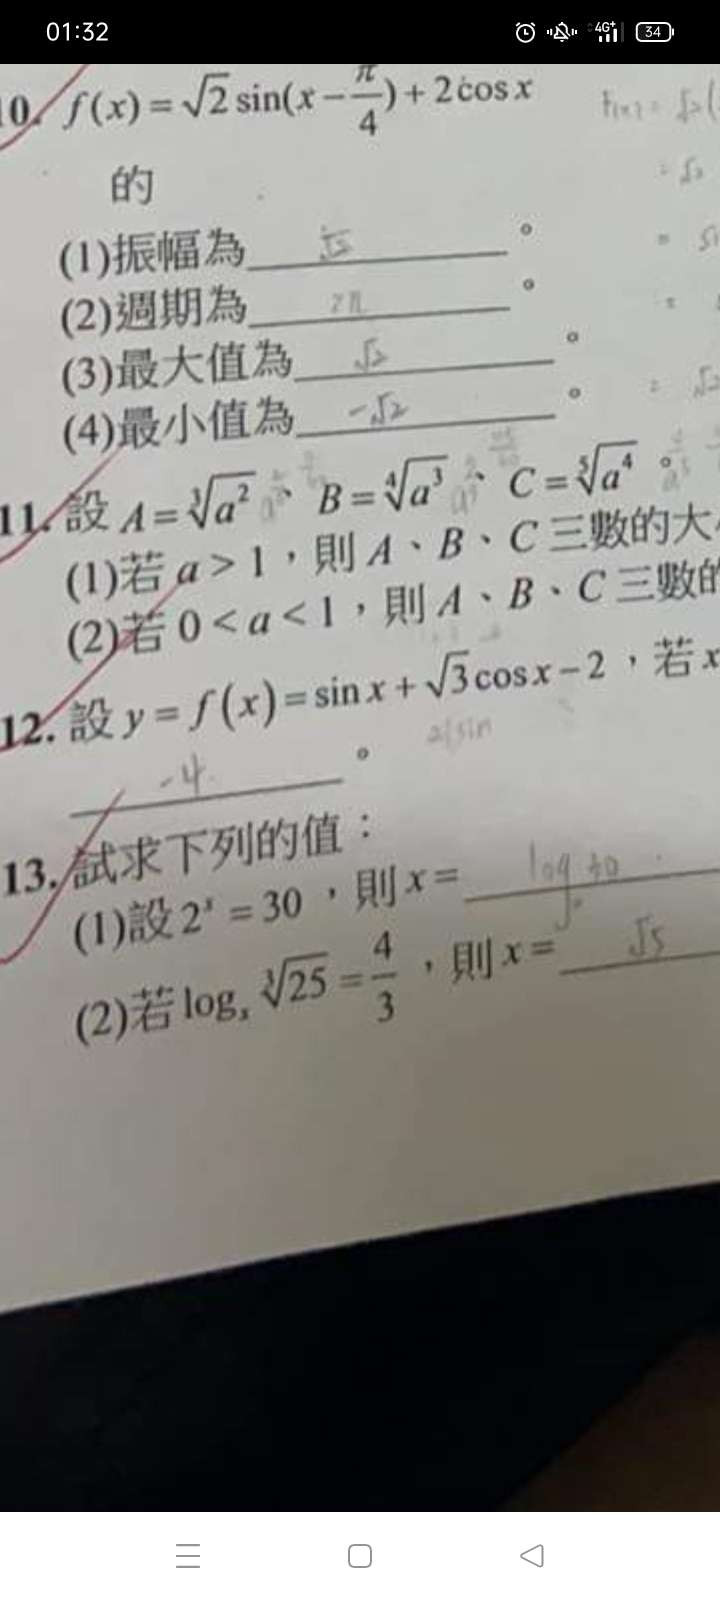 01:32
4G+ 34
10. f(x) = √2 sin(x − π/4) + 2cos x
的
(1)振幅為 √2 。
(2)週期為 2π 。
(3)最大值為 √2 。
(4)最小值為 -√2 。
11. 設 A = ∛a²、B = ∜a³、C = ⁵√a⁴。
(1)若 a > 1，則 A、B、C 三數的大
(2)若 0 < a < 1，則 A、B、C 三數的
12. 設 y = f(x) = sin x + √3 cos x − 2，若 x
2(sin
-4 。
13. 試求下列的值：
(1)設 2ˣ = 30，則 x =
(2)若 logₓ ∛25 = 4/3，則 x = √5